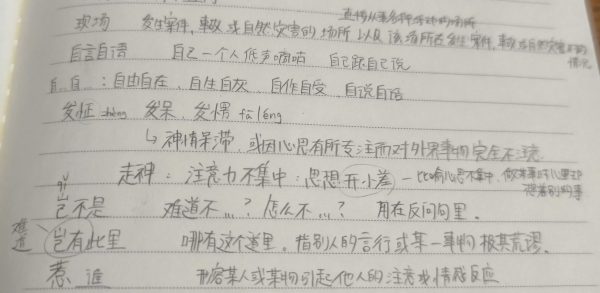 直接从事各种活动的场所
现场 发生案件、事故或自然灾害的场所以及该场所在发生案件、事故或自然灾害时的情况
自言自语 自己一个人低声嘀咕 自己跟自己说
自…自…：自由自在、自生自灭、自作自受、自说自话
发怔 zhèng 发呆、发愣 fā lèng
↳ 神情呆滞，或因心思有所专注而对外界事物完全不注意
走神：注意力不集中；思想开小差 — 比喻心思不集中，做某事时心里却想着别的事
岂不是 qǐ 难道不…？怎么不…？ 用在反问句里。
难道 岂有此理 哪有这个道理，指别人的言行或某一事物极其荒谬。
惹 谁 形容某人或某物引起他人的注意或情感反应